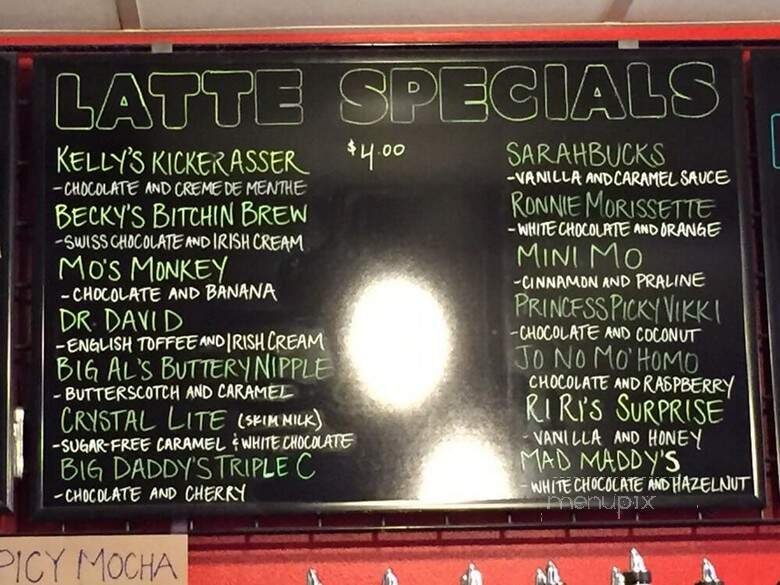 LATTE SPECIALS
$4.00
KELLY'S KICKER ASSER
-CHOCOLATE AND CREME DE MENTHE
BECKY'S BITCHIN BREW
-SWISS CHOCOLATE AND IRISH CREAM
MO'S MONKEY
-CHOCOLATE AND BANANA
DR. DAVID
-ENGLISH TOFFEE AND IRISH CREAM
BIG AL'S BUTTERY NIPPLE
-BUTTERSCOTCH AND CARAMEL
CRYSTAL LITE (SKIM MILK)
-SUGAR-FREE CARAMEL & WHITE CHOCOLATE
BIG DADDY'S TRIPLE C
-CHOCOLATE AND CHERRY
SARAHBUCKS
-VANILLA AND CARAMEL SAUCE
RONNIE MORISSETTE
-WHITE CHOCOLATE AND ORANGE
MINI MO
-CINNAMON AND PRALINE
PRINCESS PICKY VIKKI
-CHOCOLATE AND COCONUT
JO NO MO' HOMO
CHOCOLATE AND RASPBERRY
RI RI'S SURPRISE
-VANILLA AND HONEY
MAD MADDY'S
-WHITE CHOCOLATE AND HAZELNUT
menupix
PICY MOCHA